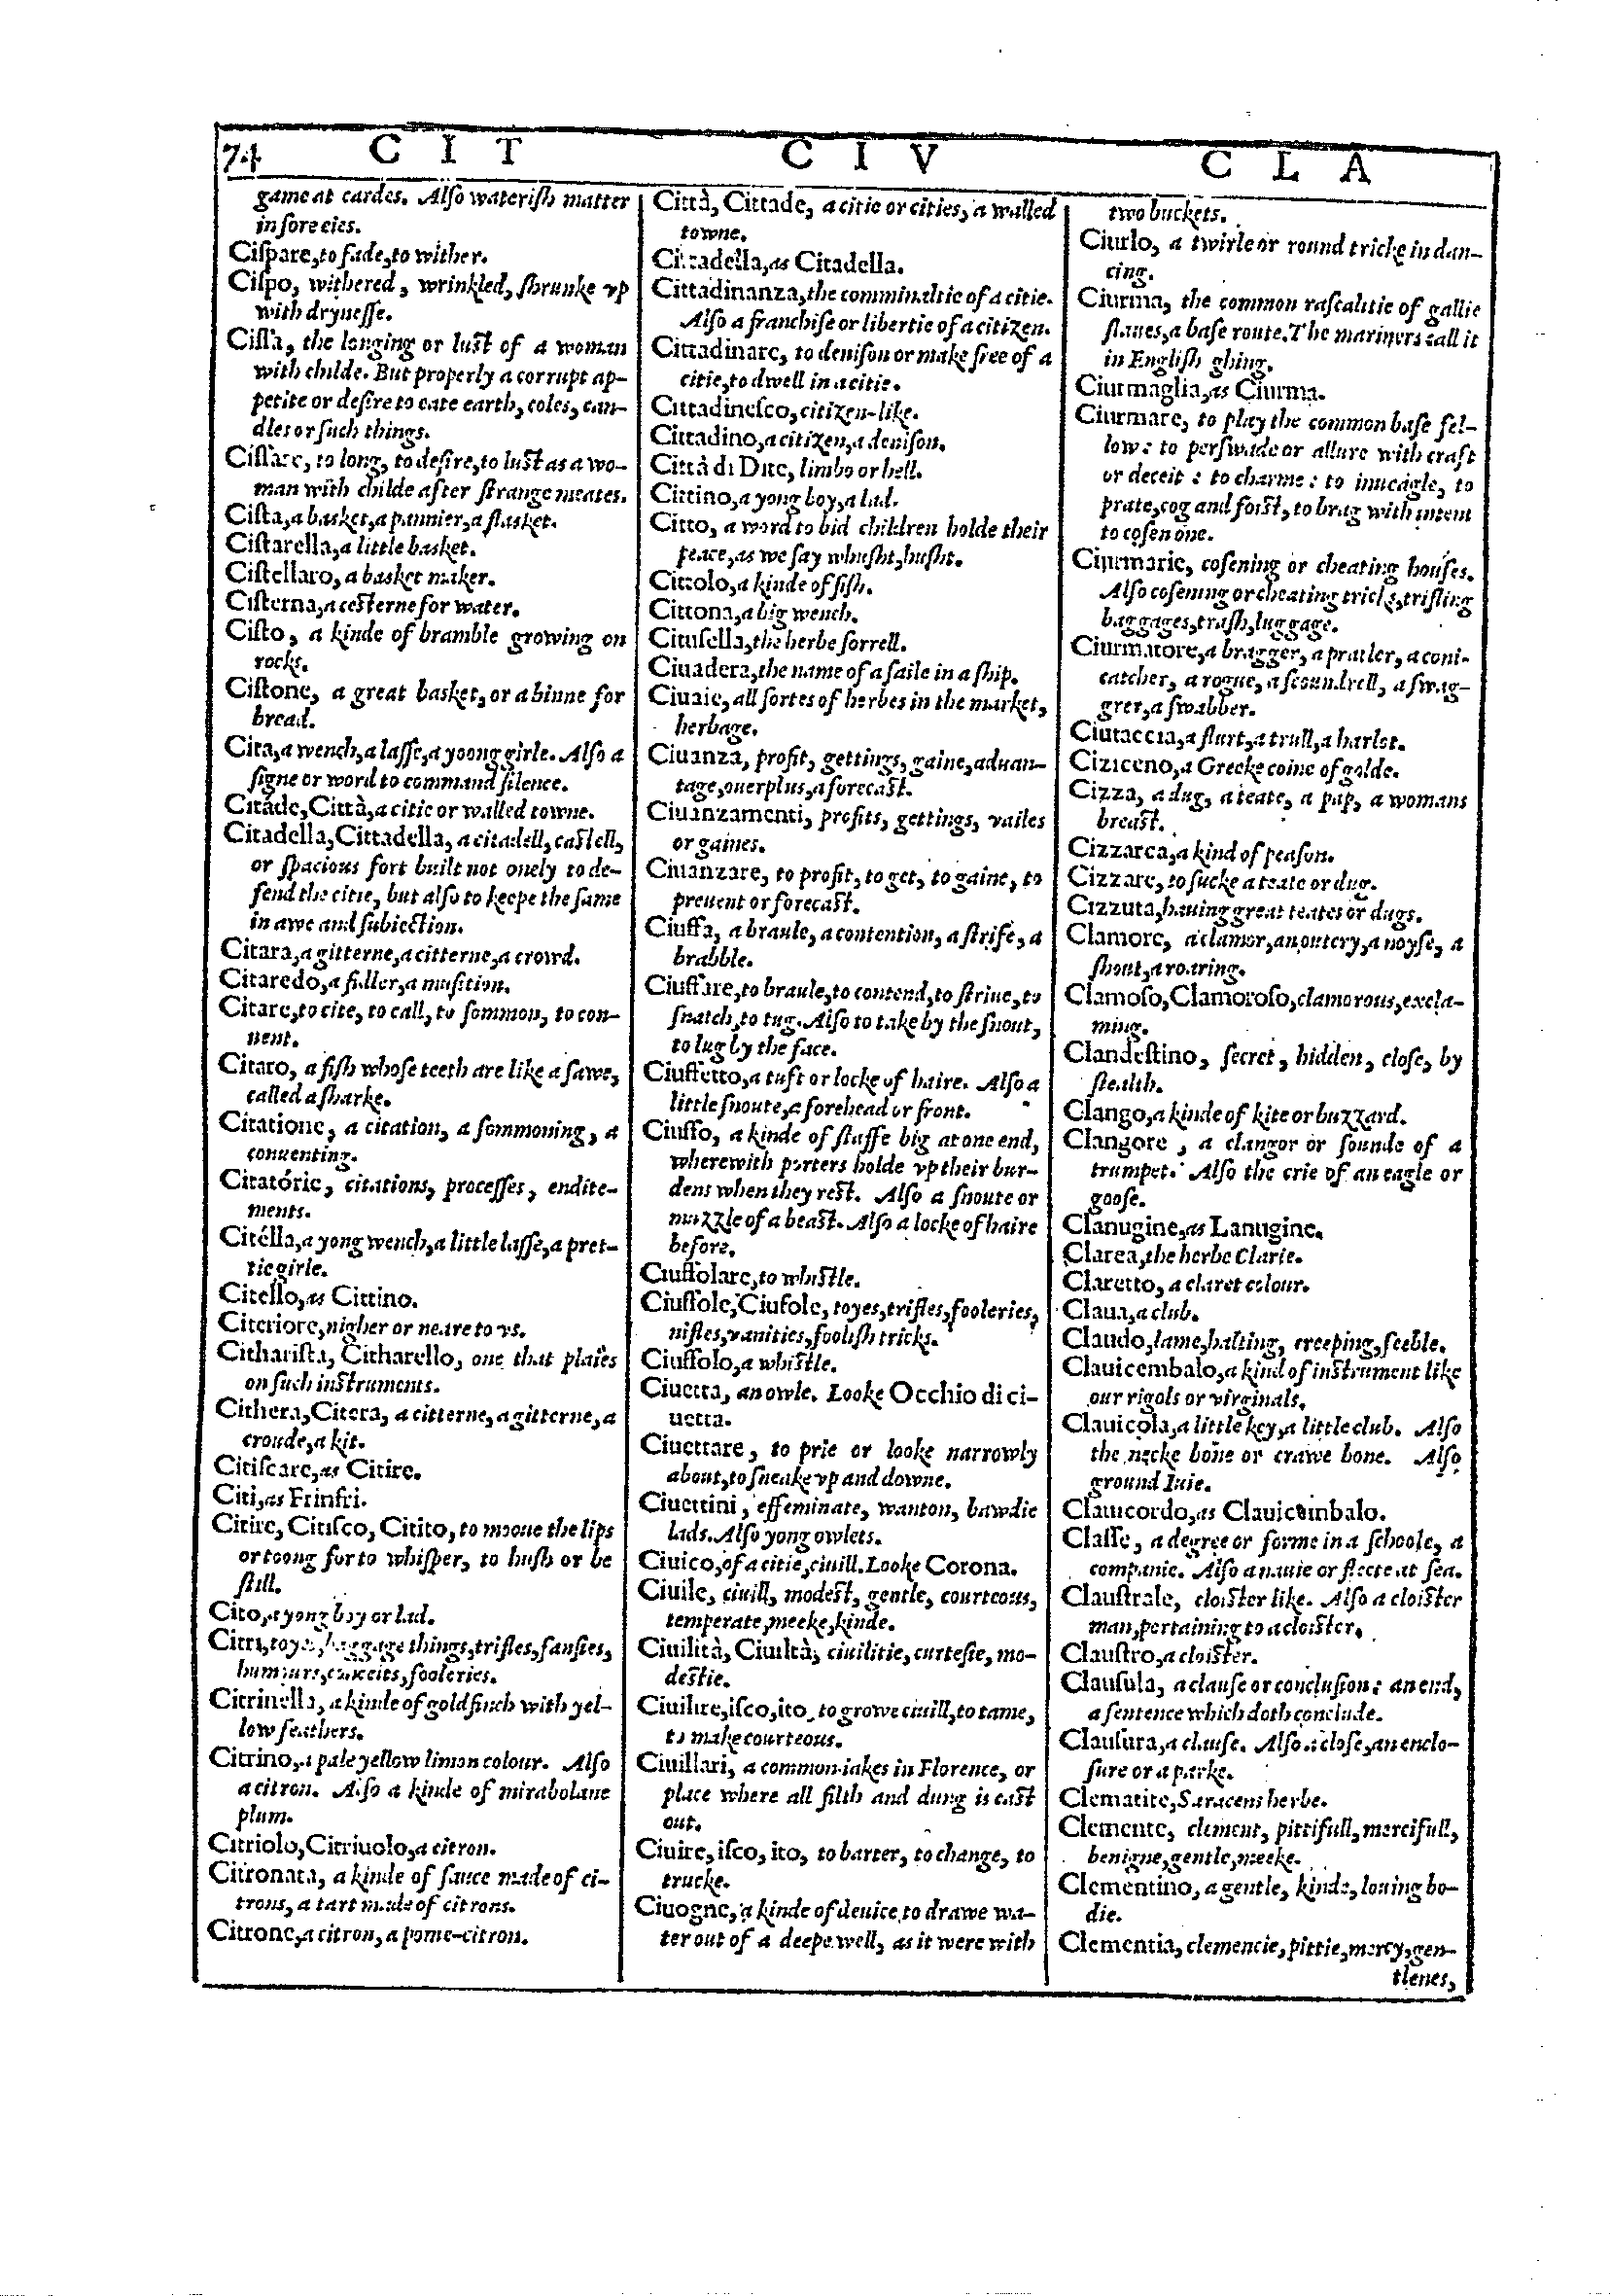 74 C I T C I V C L A
game at cardes. Alſo wateriſh matter
in ſore eies.
Ciſpare, to fade, to wither.
Ciſpo, withered, wrinkled, ſhrunke vp
with dryneſſe.
Ciſſa, the longing or luſt of a woman
with childe. But properly a corrupt ap-
petite or deſire to eate earth, coles, can-
dles or ſuch things.
Ciſſare, to long, to deſire, to luſt as a wo-
man with childe after ſtrange meates.
Ciſta, a basket, a pannier, a flasket.
Ciſtarella, a little basket.
Ciſtellaro, a basket maker.
Ciſterna, a ceſterne for water.
Ciſto, a kinde of bramble growing on
rocks.
Ciſtone, a great basket, or a binne for
bread.
Cita, a wench, a laſſe, a yoong girle. Alſo a
ſigne or word to command ſilence.
Citáde, Città, a citie or walled towne.
Citadella, Cittadella, a citadell, caſtell,
or ſpacious fort built not onely to de-
fend the citie, but alſo to keepe the ſame
in awe and ſubiection.
Citara, a gitterne, a citterne, a crowd.
Citaredo, a fidler, a muſition.
Citare, to cite, to call, to ſommon, to con-
uent.
Citaro, a fiſh whoſe teeth are like a ſawe,
called a ſharke.
Citatione, a citation, a ſommoning, a
conuenting.
Citatórie, citations, proceſſes, endite-
ments.
Citélla, a yong wench, a little laſſe, a pret-
tie girle.
Citello, as Cittino.
Citeriore, nigher or neare to vs.
Cithariſta, Citharello, one that plaies
on ſuch inſtruments.
Cithera, Citera, a citterne, a gitterne, a
croude, a kit.
Citiſcare, as Citire.
Citi, as Frinfri.
Citire, Citiſco, Citito, to mooue the lips
or toong for to whiſper, to huſh or be
ſtill.
Cito, a yong boy or lad.
Citri, toyes, baggage things, trifles, fanſies,
humours, conceits, fooleries.
Citrinella, a kinde of goldfinch with yel-
low feathers.
Citrino, a pale yellow limon colour. Alſo
a citron. Alſo a kinde of mirabolane
plum.
Citriolo, Citriuolo, a citron.
Citronata, a kinde of ſauce made of ci-
trons, a tart made of citrons.
Citrone, a citron, a pome-citron.
Città, Cittade, a citie or cities, a walled
towne.
Cittadella, as Citadella.
Cittadinanza, the comminaltie of a citie.
Alſo a franchiſe or libertie of a citizen.
Cittadinare, to deniſon or make free of a
citie, to dwell in a citie.
Cittadineſco, citizen-like.
Cittadino, a citizen, a deniſon.
Città di Dite, limbo or hell.
Cittino, a yong boy, a lad.
Citto, a word to bid children holde their
peace, as we ſay whuſht, huſht.
Cittolo, a kinde of fiſh.
Cittona, a big wench.
Cituſella, the herbe ſorrell.
Ciuadera, the name of a ſaile in a ſhip.
Ciuaie, all ſortes of herbes in the market,
herbage.
Ciuanza, profit, gettings, gaine, aduan-
tage, ouerplus, a forecaſt.
Ciuanzamenti, profits, gettings, vailes
or gaines.
Ciuanzare, to profit, to get, to gaine, to
preuent or forecaſt.
Ciuffa, a braule, a contention, a ſtrife, a
brabble.
Ciuffare, to braule, to contend, to ſtriue, to
ſnatch, to tug. Alſo to take by the ſnout,
to lug by the face.
Ciuffetto, a tuft or locke of haire. Alſo a
little ſnoute, a forehead or front.
Ciuffo, a kinde of ſtaffe big at one end,
wherewith porters holde vp their bur-
dens when they reſt. Alſo a ſnoute or
muzzle of a beaſt. Alſo a locke of haire
before.
Ciuffolare, to whiſtle.
Ciuffole, Ciufole, toyes, trifles, fooleries,
nifles, vanities, fooliſh tricks.
Ciuffolo, a whiſtle.
Ciuetta, an owle. Looke Occhio di ci-
uetta.
Ciuettare, to prie or looke narrowly
about, to ſneake vp and downe.
Ciuettini, effeminate, wanton, bawdie
lads. Alſo yong owlets.
Ciuico, of a citie, ciuill. Looke Corona.
Ciuile, ciuill, modeſt, gentle, courteous,
temperate, meeke, kinde.
Ciuilità, Ciuiltà, ciuilitie, curteſie, mo-
deſtie.
Ciuilire, iſco, ito, to growe ciuill, to tame,
to make courteous.
Ciuillari, a common iakes in Florence, or
place where all filth and dung is caſt
out.
Ciuire, iſco, ito, to barter, to change, to
trucke.
Ciuogne, a kinde of deuice to drawe wa-
ter out of a deepe well, as it were with
two buckets.
Ciurlo, a twirle or round tricke in dan-
cing.
Ciurma, the common raſcalitie of gallie
ſlaues, a baſe route. The mariners call it
in Engliſh ghing.
Ciurmaglia, as Ciurma.
Ciurmare, to play the common baſe fel-
low: to perſwade or allure with craft
or deceit: to charme: to inueagle, to
prate, cog and foiſt, to brag with intent
to coſen one.
Ciurmarie, coſening or cheating houſes.
Alſo coſening or cheating tricks, trifling
baggages, traſh, luggage.
Ciurmatore, a bragger, a pratler, a coni-
catcher, a rogue, a ſcoundrell, a ſwag-
grer, a ſwabber.
Ciutaccia, a flurt, a trull, a harlot.
Ciziceno, a Greeke coine of golde.
Cizza, a dug, a teate, a pap, a womans
breaſt.
Cizzarca, a kind of peaſon.
Cizzare, to ſucke a teate or dug.
Cizzuta, hauing great teates or dugs.
Clamore, a clamor, an outcry, a noyſe, a
ſhout, a roaring.
Clamoſo, Clamoroſo, clamorous, excla-
ming.
Clandeſtino, ſecret, hidden, cloſe, by
ſtealth.
Clango, a kinde of kite or buzzard.
Clangore, a clangor or ſounde of a
trumpet. Alſo the crie of an eagle or
gooſe.
Clanugine, as Lanugine.
Clarea, the herbe Clarie.
Claretto, a claret colour.
Claua, a club.
Claudo, lame, halting, creeping, feeble.
Clauicembalo, a kind of inſtrument like
our rigols or virginals.
Clauicola, a little key, a little club. Alſo
the necke bone or crawe bone. Alſo
ground Iuie.
Clauicordo, as Clauicembalo.
Claſſe, a degree or forme in a ſchoole, a
companie. Alſo a nauie or fleete at ſea.
Clauſtrale, cloiſter like. Alſo a cloiſter
man, pertaining to a cloiſter.
Clauſtro, a cloiſter.
Clauſula, a clauſe or concluſion: an end,
a ſentence which doth conclude.
Clauſura, a clauſe. Alſo a cloſe, an enclo-
ſure or a parke.
Clematite, Saracens herbe.
Clemente, clement, pittifull, mercifull,
benigne, gentle, meeke.
Clementino, a gentle, kinde, louing bo-
die.
Clementia, clemencie, pittie, mercy, gen-
tlenes,